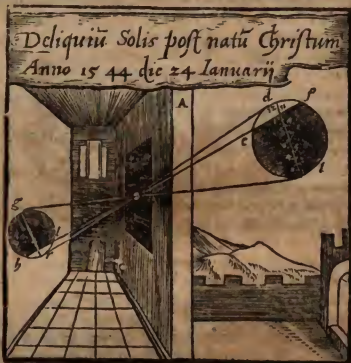 Deliquiũ Solis poſt natũ Chriſtum
Anno 15 44 die 24 Ianuarij
A
d
p
12/11
e
l
g
h